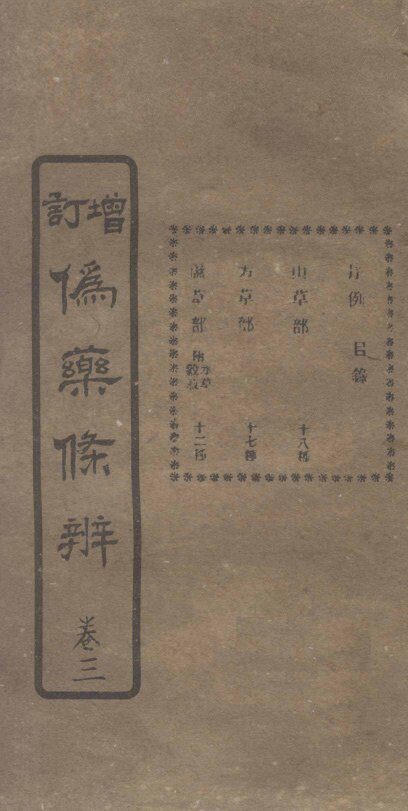 序例 目錄
山草部 十八種
芳草部 十七種
隰草部 附水草穀菽 十二種
增訂
僞藥條辨
卷三